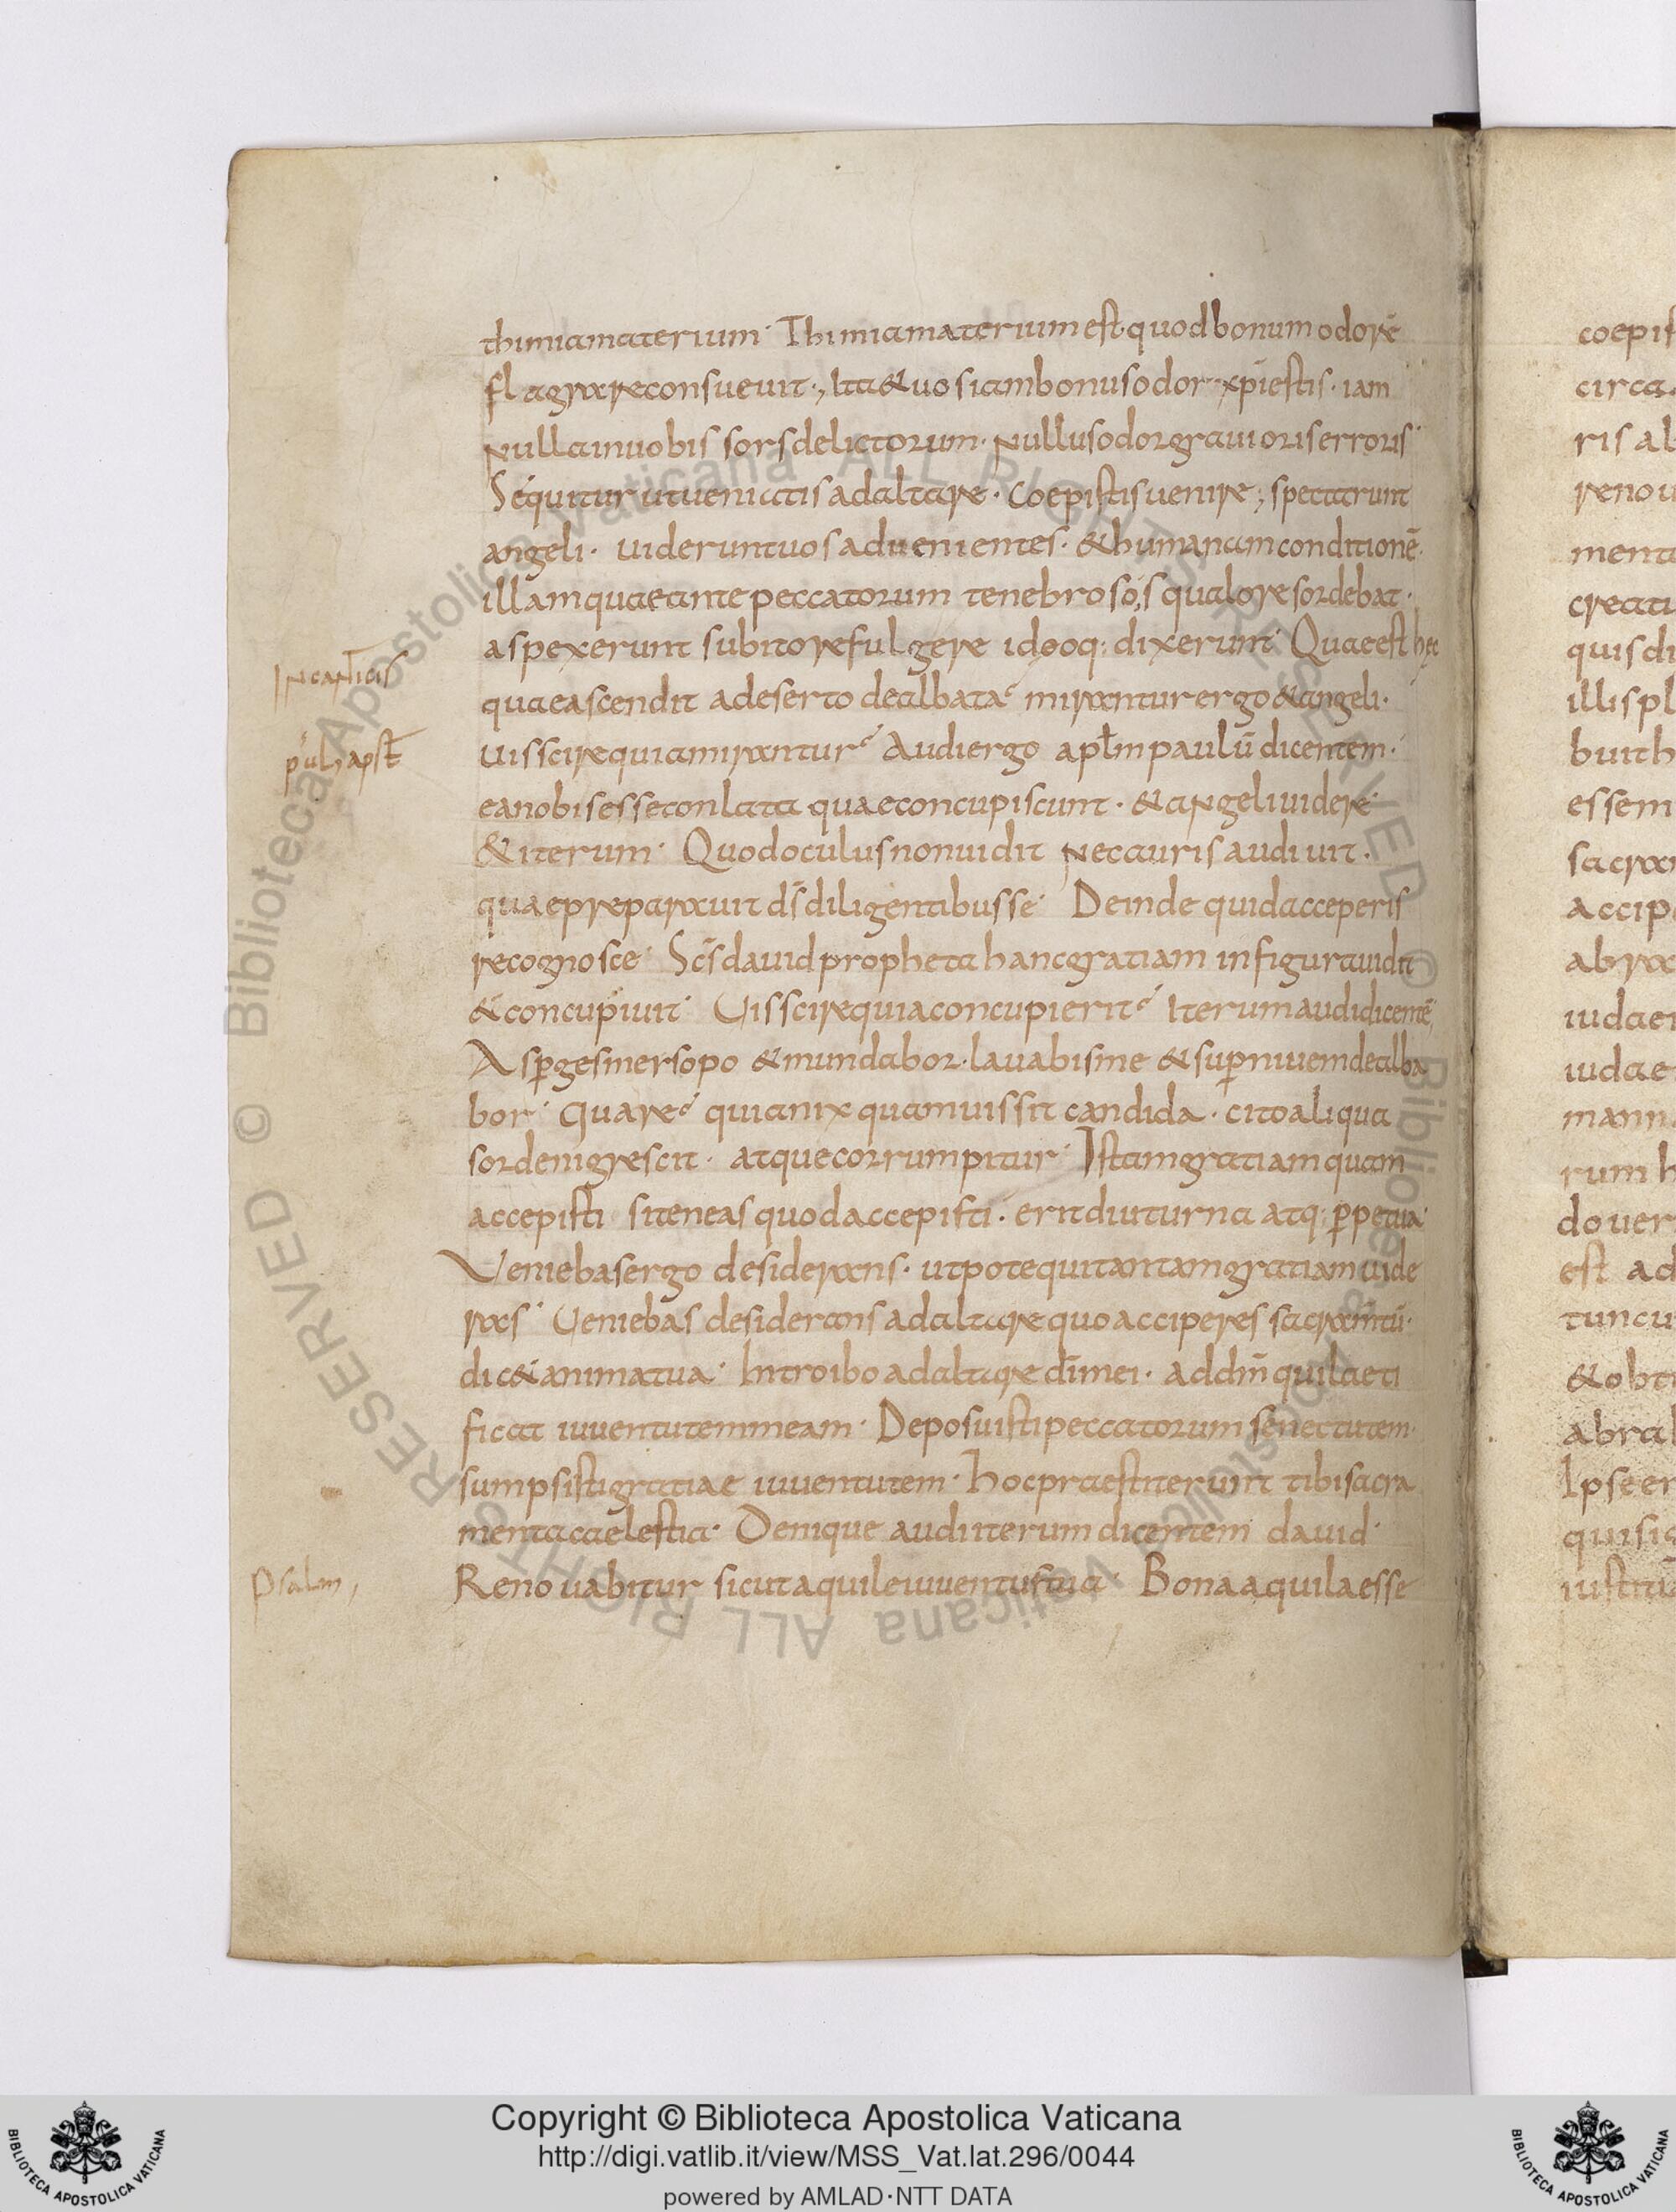 thimiamaterium· Thimiamaterium est quod bonum odorē
flagrare consueuit·, Ita & uos iam bonus odor xp̄i estis· iam
nulla in uobis sors delictorum· nullus odor grauioris erroris·
Sequitur ut ueniatis ad altare· Coepistis uenire; spectarunt
angeli· uiderunt uos aduenientes· & humanam conditionē·
illam quae ante peccatorum tenebroso squalore sordebat·
aspexerunt subito refulgere ideoq: dixerunt· Quae est hęc
In canticis
quae ascendit a deserto dealbata? mirantur ergo & angeli·
uis scire quia mirantur? Audi ergo apl̄m paulū dicentem·
paul, apst̄
ea nobis esse conlata quae concupiscunt· & angeli uidere·
& iterum· Quod oculus non uidit nec auris audiuit·
quae preparauit d̄s diligentibus se· Deinde quid acceperis
recognosce· Sc̄s dauid propheta hanc gratiam in figura uidit
& concupiuit· Uis scire quia concupierit? Iterum audi dicentē,
Asp̄ges me rsopo & mundabor· lauabis me & sup̄ niuem dealba
bor· Quare? quia nix quamuis sit candida· cito aliqua
sorde nigrescit· atque corrumpitur· Istam gratiam quam
accepisti si teneas quod accepisti· erit diuturna atq: p̄petua·
Veniebas ergo desiderans· utpote qui tantam gratiam uide
ras· Ueniebas desiderans ad altare quo acciperes sacram̄tū·
dic& anima tua· Introibo ad altare dī mei· ad dm̄ qui laeti
ficat iuuentutem meam· Deposuisti peccatorum senectutem·
sumpsisti gratiae iuuentutem· Hoc praestiterunt tibi sacra
menta caelestia· Denique audi iterum dicentem dauid·
Psalm,
Renouabitur sicut aquile iuuentus tua· Bona aquila esse
coepis
circa·
ris al
reno u
menta
creatu
quis di
illi spl
buit h
essem
sacra
accip
abra
iudaei
iudae
mann
rum h
do uer
est ad
tunc u
& obt
abra
Ipse er
qui sic
iustit
Copyright © Biblioteca Apostolica Vaticana
http://digi.vatlib.it/view/MSS_Vat.lat.296/0044
powered by AMLAD·NTT DATA
BIBLIOTECA APOSTOLICA VATICANA
BIBLIOTECA APOSTOLICA VATICANA
© Biblioteca Apostolica Vaticana ALL RIGHTS RESERVED
© Biblioteca Apostolica Vaticana ALL RIGHTS RESERVED